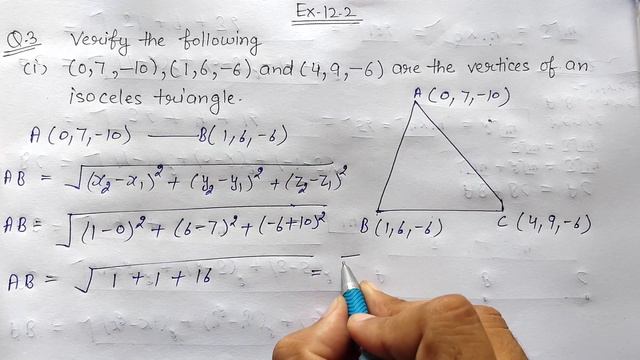 Ex-12.2
Q.3 Verify the following
(i) (0,7,-10), (1,6,-6) and (4,9,-6) are the vertices of an
isoceles triangle.
A (0,7,-10)
A (0,7,-10) —— B(1,6,-6)
AB = √(x₂-x₁)² + (y₂-y₁)² + (z₂-z₁)²
AB = √(1-0)² + (6-7)² + (-6+10)²
B (1,6,-6) C (4,9,-6)
AB = √1 + 1 + 16 =